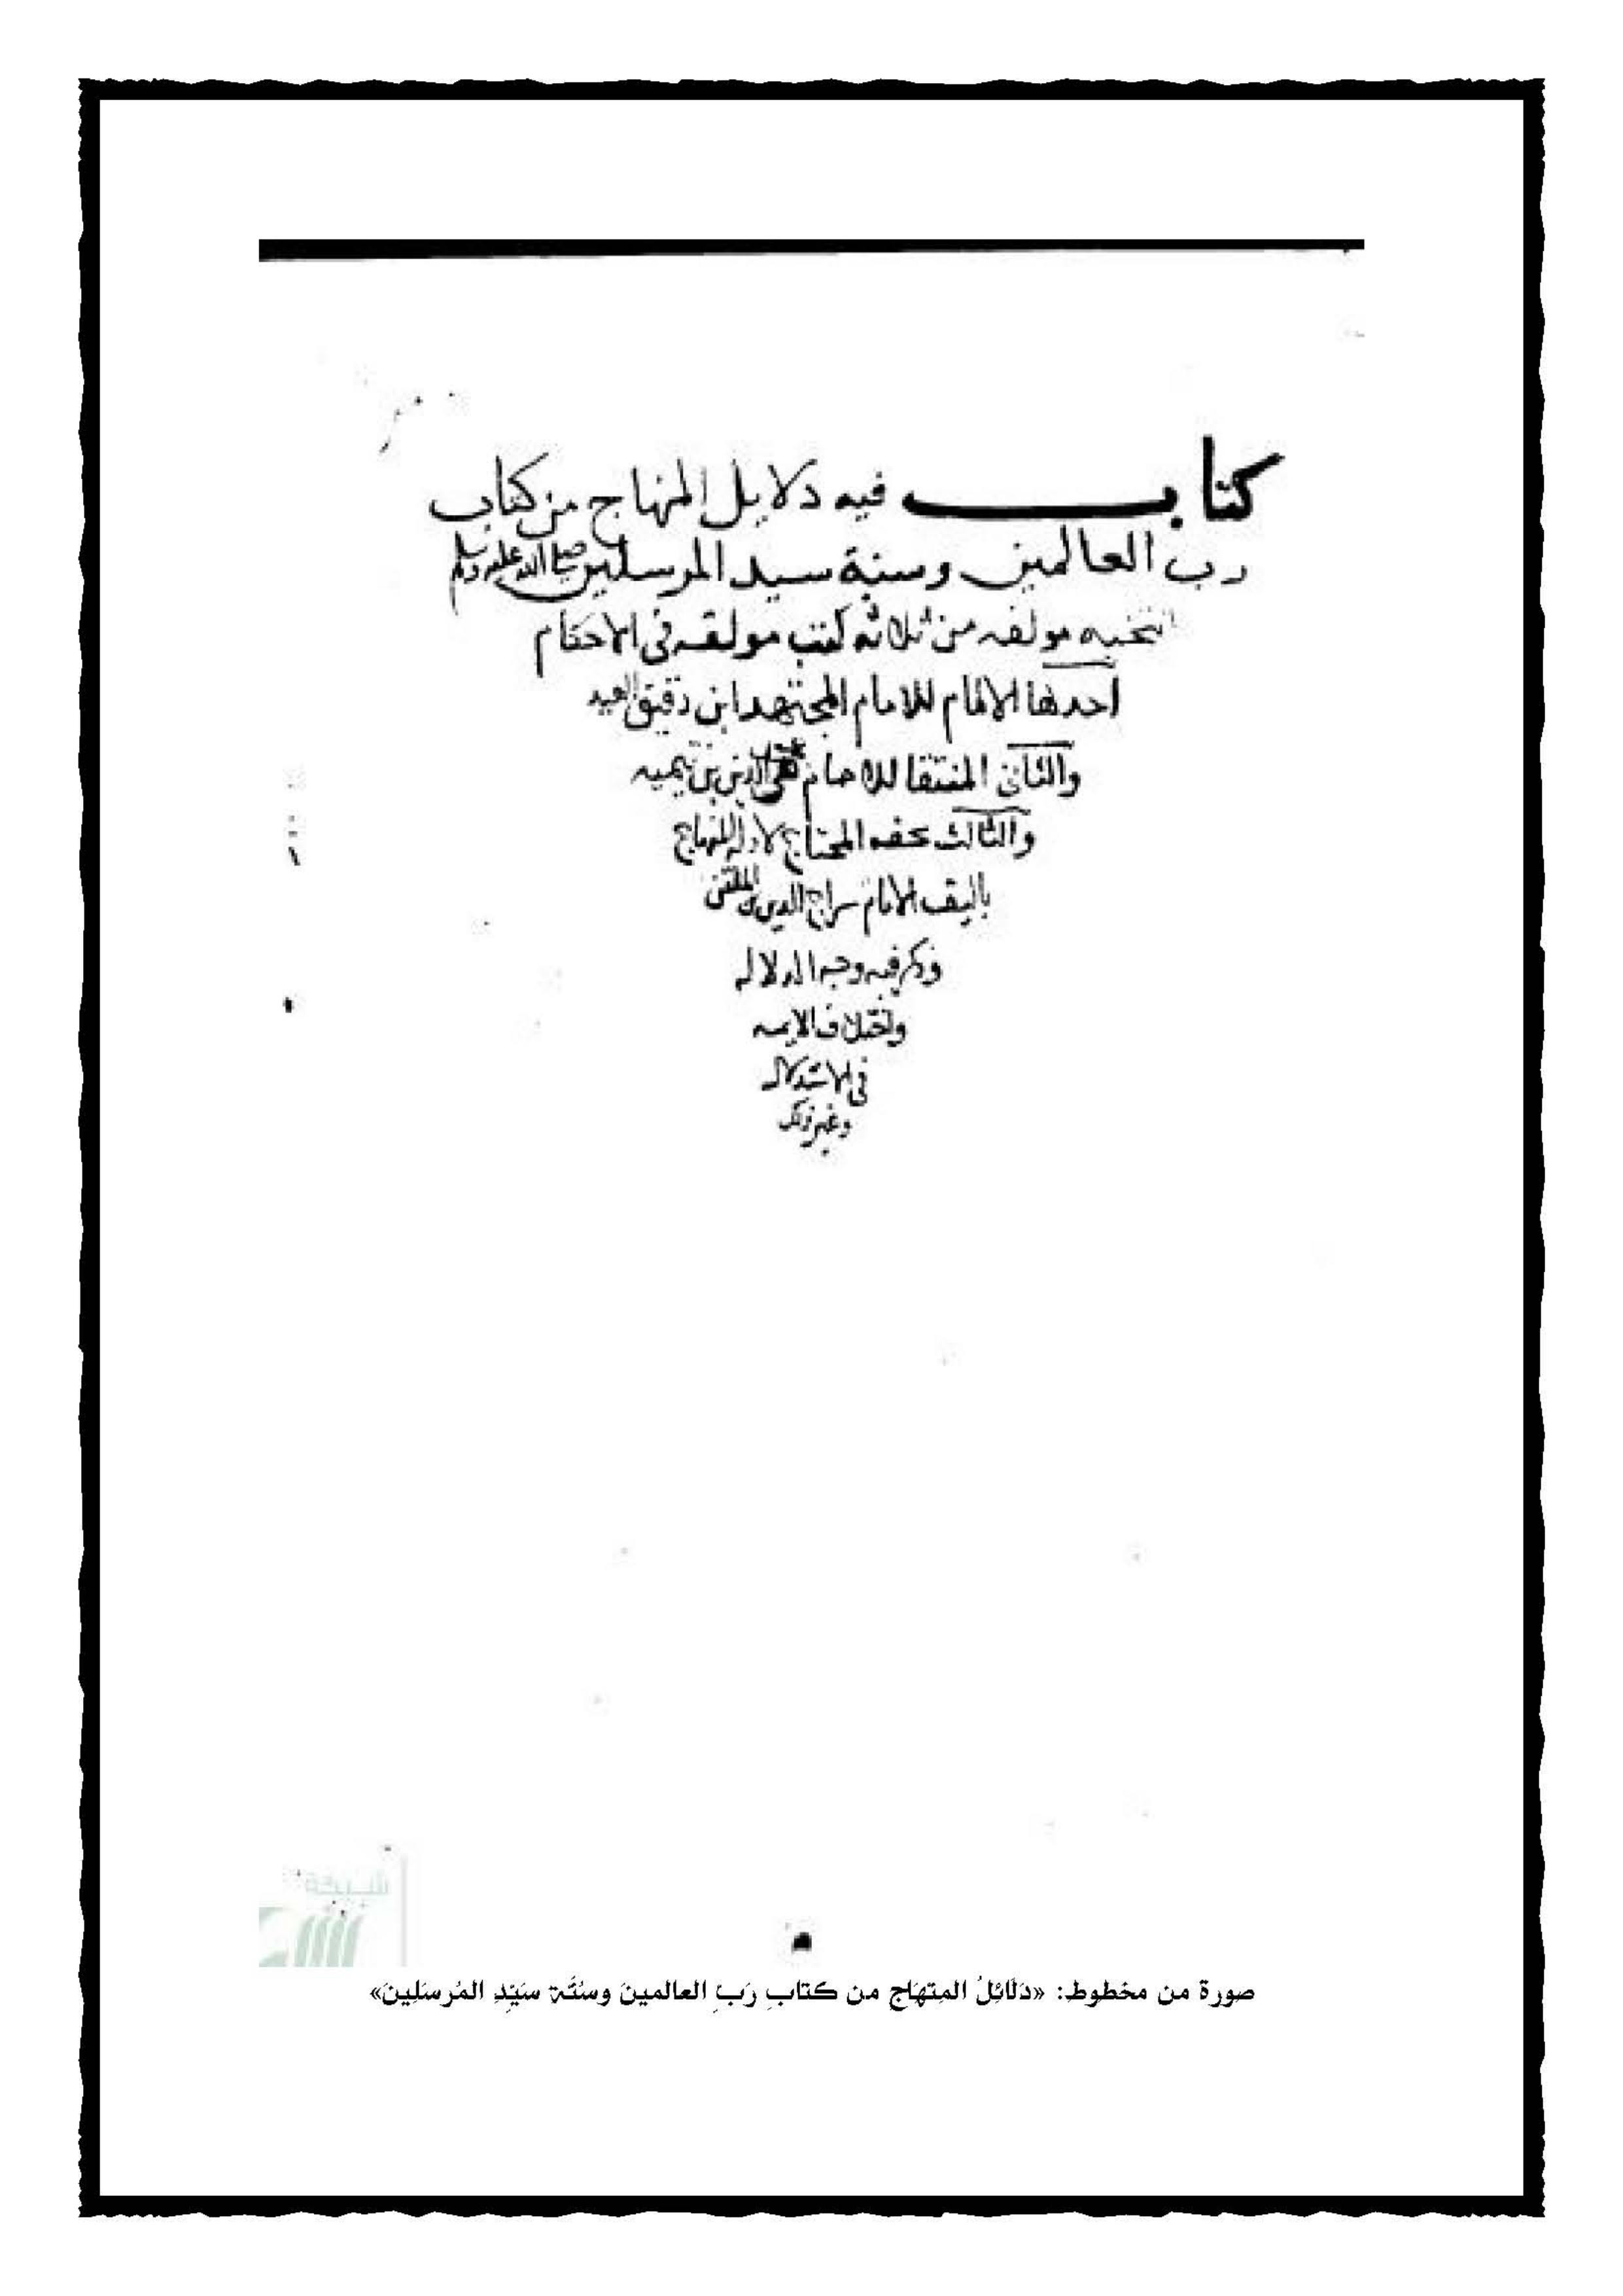 كتاب فيه دلايل المنهاج من كتاب
رب العالمين وسنة سيد المرسلين صلى الله عليه وسلم
انتخبه مولفه من ثلاثة كتب مولفه في الاحكام
احدها الالمام للامام المجتهد ابن دقيق العيد
والثاني المنتقا للامام الدين بن تيميه
والثالث تحفه المحتاج لادلة المنهاج
تاليف الامام سراج الدين الملقن
وذكر فيه وجه الدلاله
واختلاف الايمه
في الاستدلال
وغير ذلك
شبكة
صورة من مخطوط: «دَلَائِلُ المِنهَاجِ من كتابِ رَبِّ العالمينَ وسُنَّة سَيِّدِ المُرسَلِينَ»